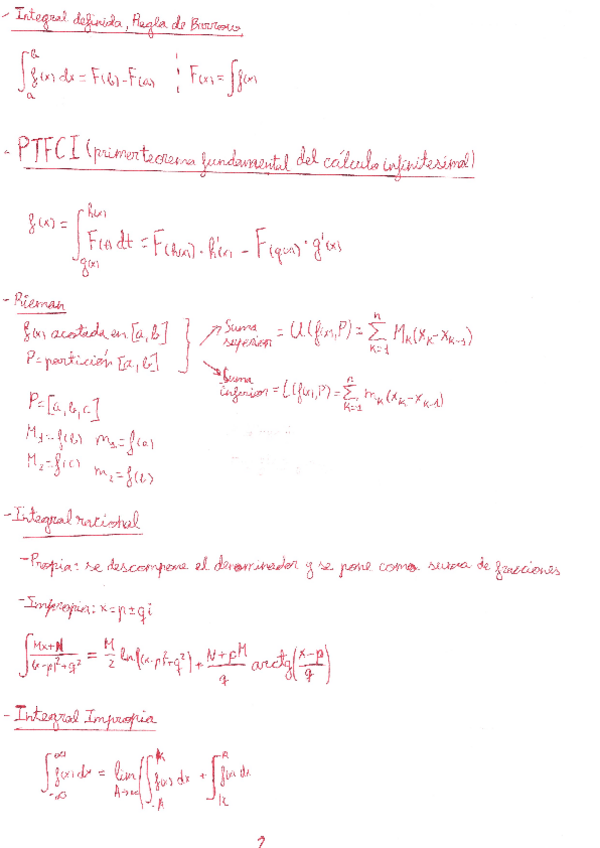 - Integral definida, Regla de Barrow
∫_a^b f(x) dx = F(b) - F(a) ; F(x) = ∫f(x)
- PTFCI (primer teorema fundamental del cálculo infinitesimal)
f(x) = ∫_{g(x)}^{h(x)} F(t) dt = F(h(x)) · h'(x) - F(g(x)) · g'(x)
- Rieman
f(x) acotada en [a, b]
P = partición [a, b]
Suma superior = U(f(x), P) = Σ_{k=1}^n M_k (x_k - x_{k-1})
Suma inferior = L(f(x), P) = Σ_{k=1}^n m_k (x_k - x_{k-1})
P = [a, b, c]
M_1 = f(b) m_1 = f(a)
M_2 = f(c) m_2 = f(b)
- Integral racional
- Propia: se descompone el denominador y se pone como suma de fracciones
- Impropia: x = p ± qi
∫ (Mx + N)/((x - p)² + q²) = M/2 ln((x - p)² + q²) + (N + pM)/q arctg((x - p)/q)
- Integral Impropia
∫_{-∞}^{∞} f(x) dx = lim_{A→∞} (∫_{-A}^{k} f(x) dx + ∫_{k}^{A} f(x) dx